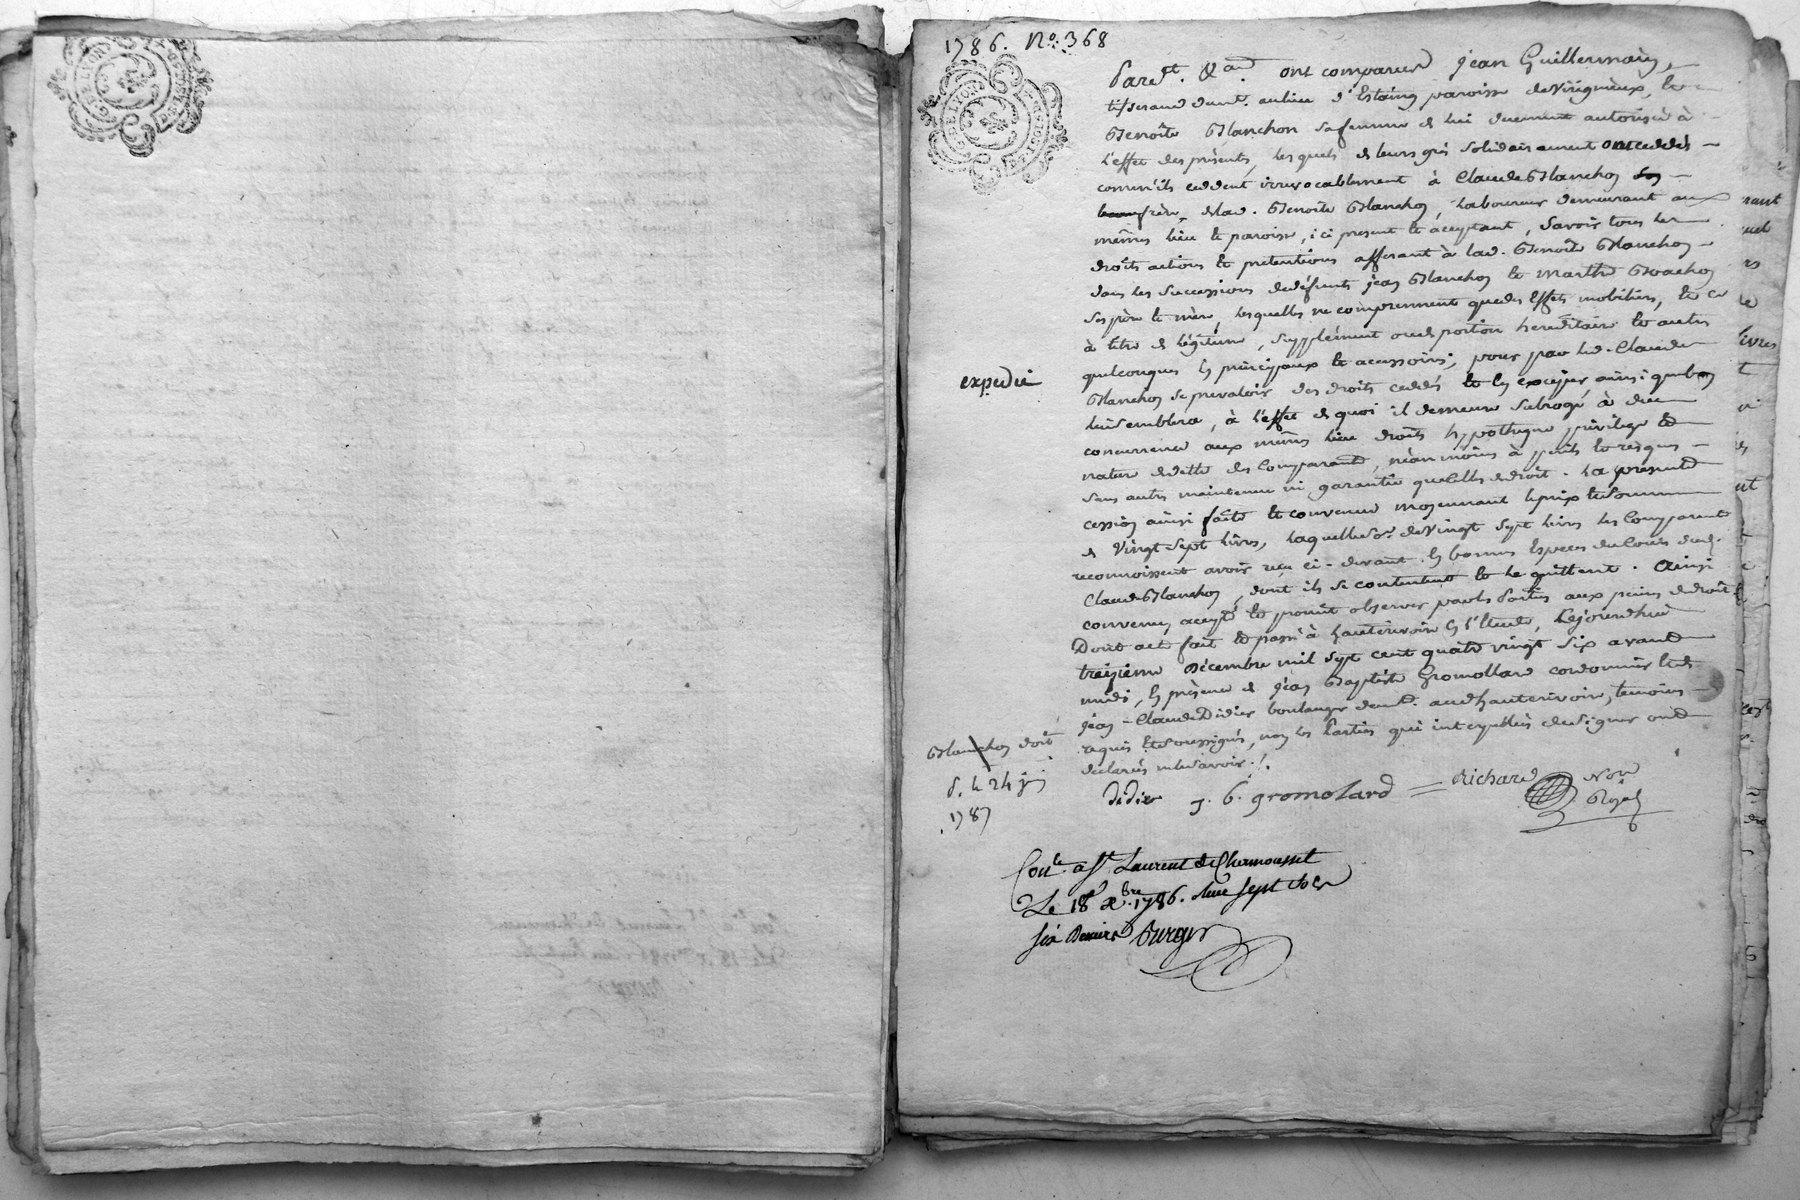 1786. No. 368
Pardt. &a. ont comparu jean Guillermain,
tisserand demt. au lieu d'Estaing paroisse de Virigneux, et
Benoite Blanchon sa femme de lui duement autorisée à
l'effet des présents, lesquels de leurs grés solidairement ont cédés
comm'ils ceddent irrevocablement à Claude Blanchon son
frère, de lad. Benoite Blanchon, laboureur demeurant aux
mêmes lieu et paroisse, ici present et acceptant, savoir tous les
droits actions et pretentions afferant à lad. Benoite Blanchon
dans les successions de défunts jean Blanchon et Marthe
ses père et mère, lesquelles ne comprennent que des effets mobiliers, et ce
à titre de légitime, supplément ou de portion hereditaire et autres
quelconques en principaux et accessoires; pour par led. Claude
Blanchon se prevaloir des droits ceddés et les exciper ainsi que bon
lui semblera, à l'effet de quoi il demeure subrogé à due
concurrence aux mêmes lieu droits hypotheque privilege et
nature de dette des Comparants, néanmoins à perils et risques
sans autre maintenue ni garantie que celles de droit. La presente
cession ainsi faite et convenue moyennant le prix et somme
de vingt sept livres, laquelle so.e de vingt sept livres les Comparants
reconnoissent avoir reçu ci-devant en bonnes espèces du cours dud.
Claude Blanchon, dont ils se contentent et le quittent. Ainsi
convenu, accepté et promit observer par les parties aux peines de droit
Dont acte fait et passé à hauterivoir en l'Etude, le jourdhui
treizieme décembre mil sept cent quatre vingt six avant
midi, en présence de jean Baptiste Gromollard cordonnier et de
jean-Claude Didier boulanger demt. aud hauterivoir, temoins
requis et soussignés, non les parties qui interpellées de signer ont
declarés ne le savoir ./.
expedié
Blanchon doit
24
1787
didier j. b. gromolard = Richard Nore
Royal
Conle a St Laurent de Chamousset
Le 18e Xbre. 1786. Reçu sept sols
six deniers Burger